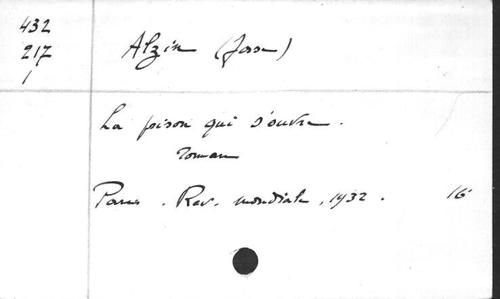 432
217
1
Alzin (Josse)
La prison qui s'ouvre.
roman
Paris. Rev. mondiale, 1932. 16°